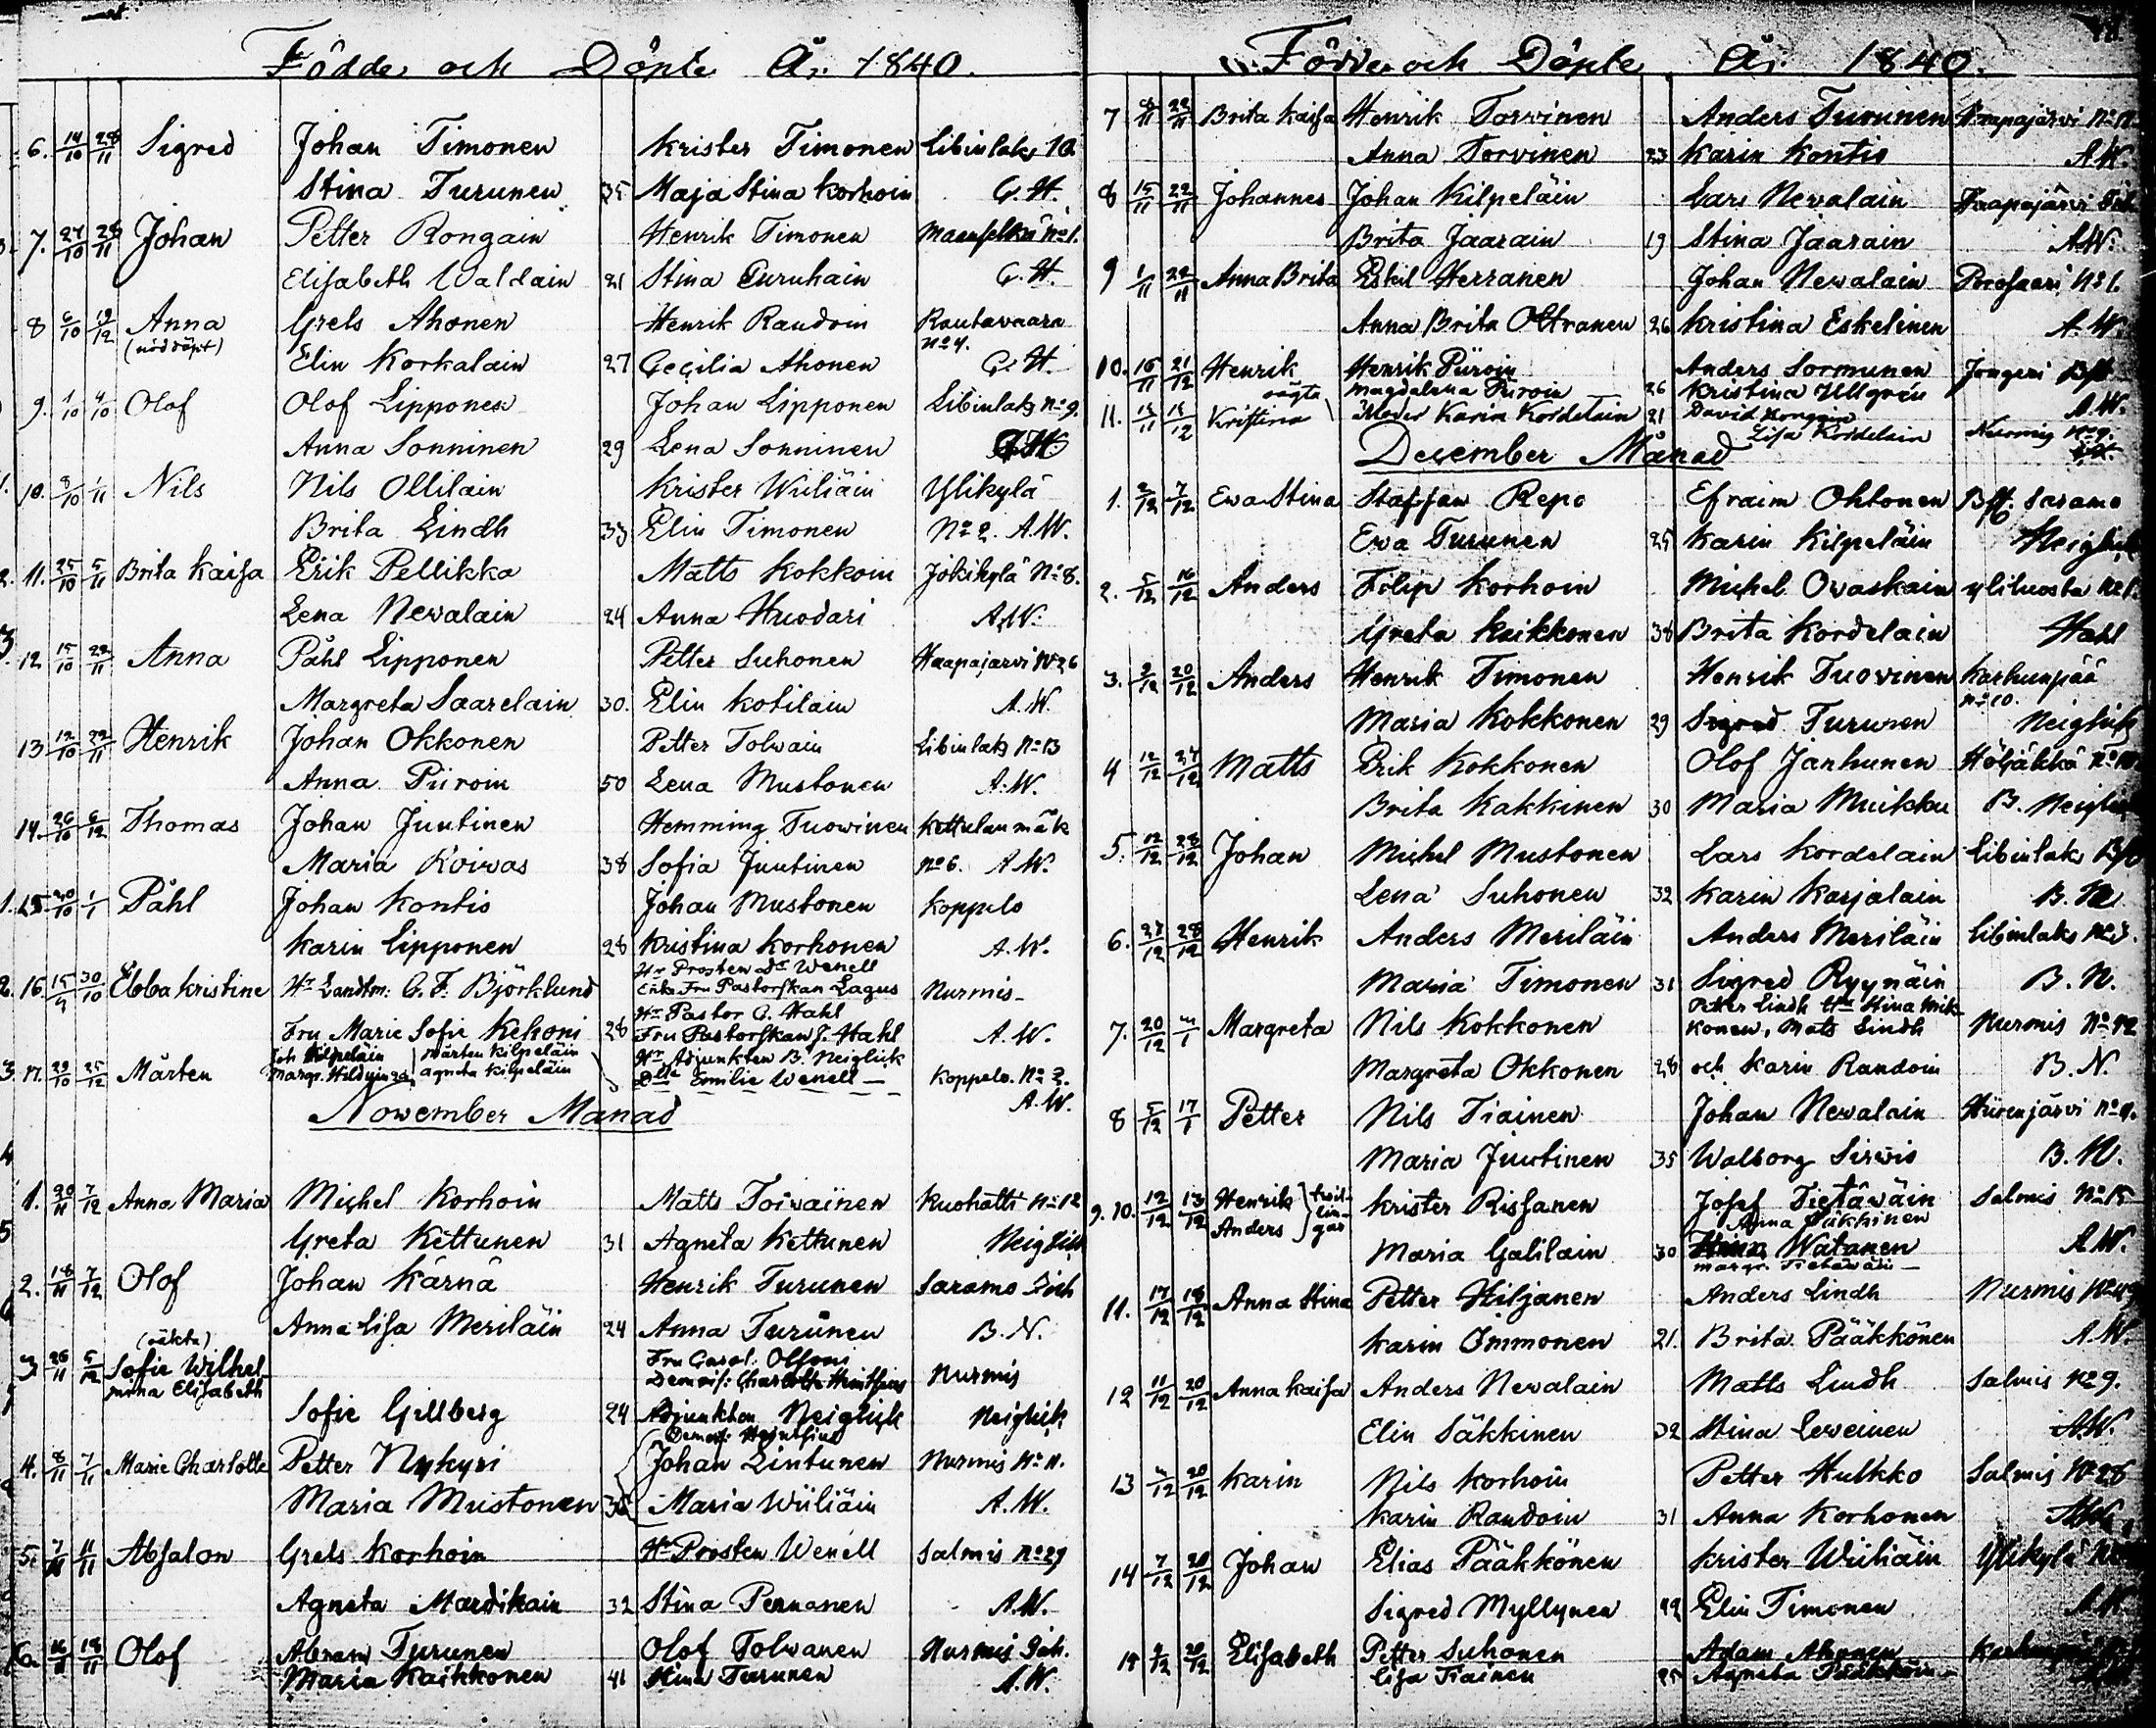 Födde och Döpte År 1840.
6. 14/10 28/11 Sigred Johan Timonen Krister Timonen Libinlaks 10.
Stina Turunen 35 Maja Stina Korhoin C. H.
7. 27/10 28/11 Johan Petter Rongain Henrik Timonen Maanselkä No 1.
Elisabeth Waldain 21 Stina Turuhain C. H.
8 6/10 19/12 Anna Grels Ahonen Henrik Raudoin Rautavaara
(nöddöpt) No 4.
Elin Korkalain 27 Cecilia Ahonen C. H.
9. 1/10 4/10 Olof Olof Lipponen Johan Lipponen Libinlaks No 9.
Anna Sonninen 29 Lena Sonninen
10. 3/10 1/11 Nils Nils Ollilain Krister Wiiliäin Ylikylä
Brita Lindh 33 Elin Timonen No 2. A.W.
11. 25/10 5/11 Brita Kaisa Erik Pellikka Matts Kokkoin Jokikylä No 8.
Lena Newalain 24 Anna Huodari A.W.
12 15/10 22/11 Anna Påhl Lipponen Petter Suhonen Haapajärvi No 26
Margreta Saarelain 30. Elin Kotilain A.W.
13 12/10 22/11 Henrik Johan Okkonen Petter Tolwain Libinlaks No 13
Anna Piiroin 50 Lena Mustonen A.W.
14. 26/10 6/12 Thomas Johan Juutinen Hemming Tuowinen Kettulanmäk
Maria Koiwas 38 Sofia Juutinen No 6. A.W.
15 20/10 1/1 Påhl Johan Kontio Johan Mustonen Koppelo
Karin Lipponen 28 Kristina Korhonen A.W.
Hr Prosten Dr Wenell
16. 15/9 30/10 Ebba Kristine Hr Landtm: C. F. Björklund Enke Fru Pastorskan Lagus Nurmis
Hr Pastor C. Hahl
Fru Marie Sofie Kekoni 28 Fru Pastorskan J. Hahl A.W.
Joh Kilpeläin Mårten Kilpeläin Hr Adjunkten B. Neiglick
17. 29/10 25/12 Mårten Margr. Hildyin agneta Kilpeläin Dlle Emilie Wenell Koppelo. No 2.
A.W.
November Månad
1. 20/11 7/12 Anna Maria Michel Korhoin Matts Toiwainen Kuohatti No 12
Greta Kettunen 31 Agneta Kettunen Neiglick
2. 18/11 7/12 Olof Johan Kärnä Henrik Turunen Saramo
Anna Lisa Meriläin 24 Anna Turunen B. N.
(oäkta) Fru Carol:
3 26/11 5/12 Sofie Wilhel- Demois: Charlotte Heintsius Nurmis
mina Elisabeth
Sofie Gillberg 24 Adjunkten Neiglick Neiglick
Demois: Heintsius
4. 8/11 7/11 Marie Charlotte Petter Nykyri Johan Lintunen Nurmis No 11.
Maria Mustonen 36 Maria Wiiliäin A.W.
5. 7/11 11/11 Absalon Grels Korhoin Hr Prosten Wenell Salmis No 29
Agneta Mardikain 32 Stina Pennanen A.W.
6. 16/11 19/11 Olof Abram Turunen Olof Tolwanen Nurmis
Maria Kaikkonen 41 Stina Turunen A.W.
Födde och Döpte År 1840.
7 8/11 22/11 Brita Kaisa Henrik Torvinen Anders Turunen Haapajärvi
Anna Torvinen 23 Karin Kontio A.W.
8 15/11 22/11 Johannes Johan Kilpeläin Lars Newalain Haapajärvi
Brita Jaarain 19 Stina Jaarain A.W.
9 1/11 22/11 Anna Brita Eskil Herranen Johan Newalain Porosaari No 1.
Anna Brita Oltranen 26 Kristina Eskelinen A.W.
10. 16/11 21/12 Henrik Henrik Piiroin Anders Sormunen Jongeri
Magdalena Piiroin 26 Kristina Ullgrén A.W.
11. 15/11 18/12 Kristina oägta Moder Karin Kordelain 21 David
Lisa Kordelain Nurmis No 9.
December Månad
1. 2/12 7/12 Ewa Stina Staffan Repo Efraim Ohtonen Saramo
Ewa Turunen 25 Karin Kilpeläin Neiglick
2. 5/12 16/12 Anders Filip Korhoin Michel Owaskain Yliluosta No 1.
Greta Kaikkonen 38 Brita Kordelain Hahl
3. 9/12 20/12 Anders Henrik Timonen Henrik Tuovinen Karhunpää
No 10.
Maria Kokkonen 29 Sigred Turunen Neiglick
4 12/12 27/12 Matts Erik Kokkonen Olof Janhunen Höljäkkä No 10
Brita Kakkinen 30 Maria Muikku B. Neiglick
5. 12/12 28/12 Johan Michel Mustonen Lars Kordelain Libinlaks
Lena Suhonen 32 Karin Karjalain B. N.
6. 27/12 28/12 Henrik Anders Meriläin Anders Meriläin Libinlaks
Maria Timonen 31 Sigred Ryynäin B. N.
Petter Lindh Hu Stina Mik-
7. 20/12 4/1 Margreta Nils Kokkonen konen, Mats Lindh Nurmis No 42
Margreta Okkonen 28 och Karin Raudoin B. N.
8 5/12 17/1 Petter Nils Tiainen Johan Newalain Hiirenjärvi No 9.
Maria Juutinen 35 Walborg Sirviö B. N.
9. 10. 12/12 13/12 Henrik Anders tvil-lin-gar Krister Rissanen Josef Tietäwäin Salmis No 15
Anna Säkkinen
Maria Galilain 30 Watanen A.W.
Margr. Tietäwäin
11. 17/12 18/12 Anna Stina Petter Hiljanen Anders Lindh Nurmis
Karin Ommonen 21. Brita Pääkkönen A.W.
12 11/12 20/12 Anna Kaisa Anders Newalain Matts Lindh Salmis No 9.
Elin Säkkinen 32 Stina Leweinen A.W.
13 4/12 20/12 Karin Nils Korhoin Petter Hulkko Salmis No 28
Karin Raudoin 31 Anna Korhonen
14 7/12 20/12 Johan Elias Pääkkönen Krister Wiiliäin Ylikylä
Sigred Myllynen 42 Elin Timonen
15 9/12 20/12 Elisabeth Petter Suhonen Adam Ahonen
Lisa Tiainen 25 Agneta Pääkköin